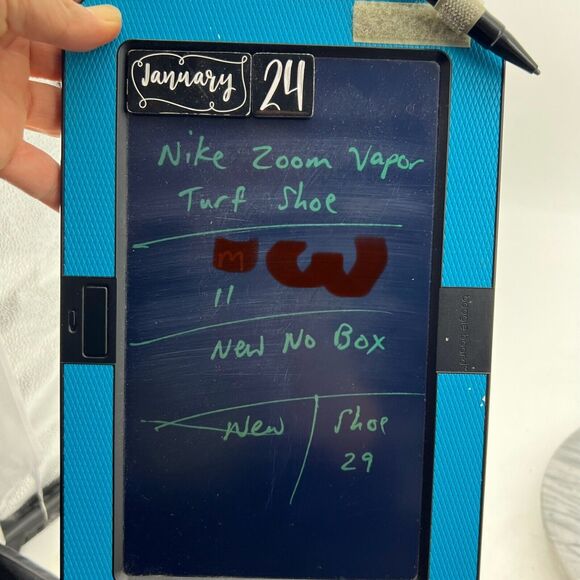 January 24
Nike Zoom Vapor
Turf Shoe
m
11
New No Box
New Shoe
29
boogie board